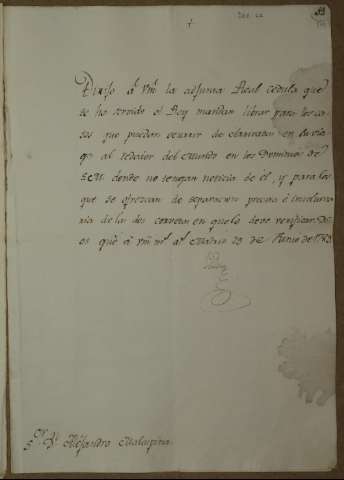 Dirijo á Vm. la adjunta Real cedula que
se ha servido el Rey mandar librar para los ca-
sos que puedan ocurrir de
al rededor del Mundo en los Dominios de
S.M. donde no tengan noticia de él, y para los
que se ofrezcan de separacion precisa é involunta-
ria de las dos corvetas en que lo debe verificar. Di-
os gūe á Vm. m.s a.s Madrid 29 de Junio de 1789
S.or D.n Alejandro Malaspina.